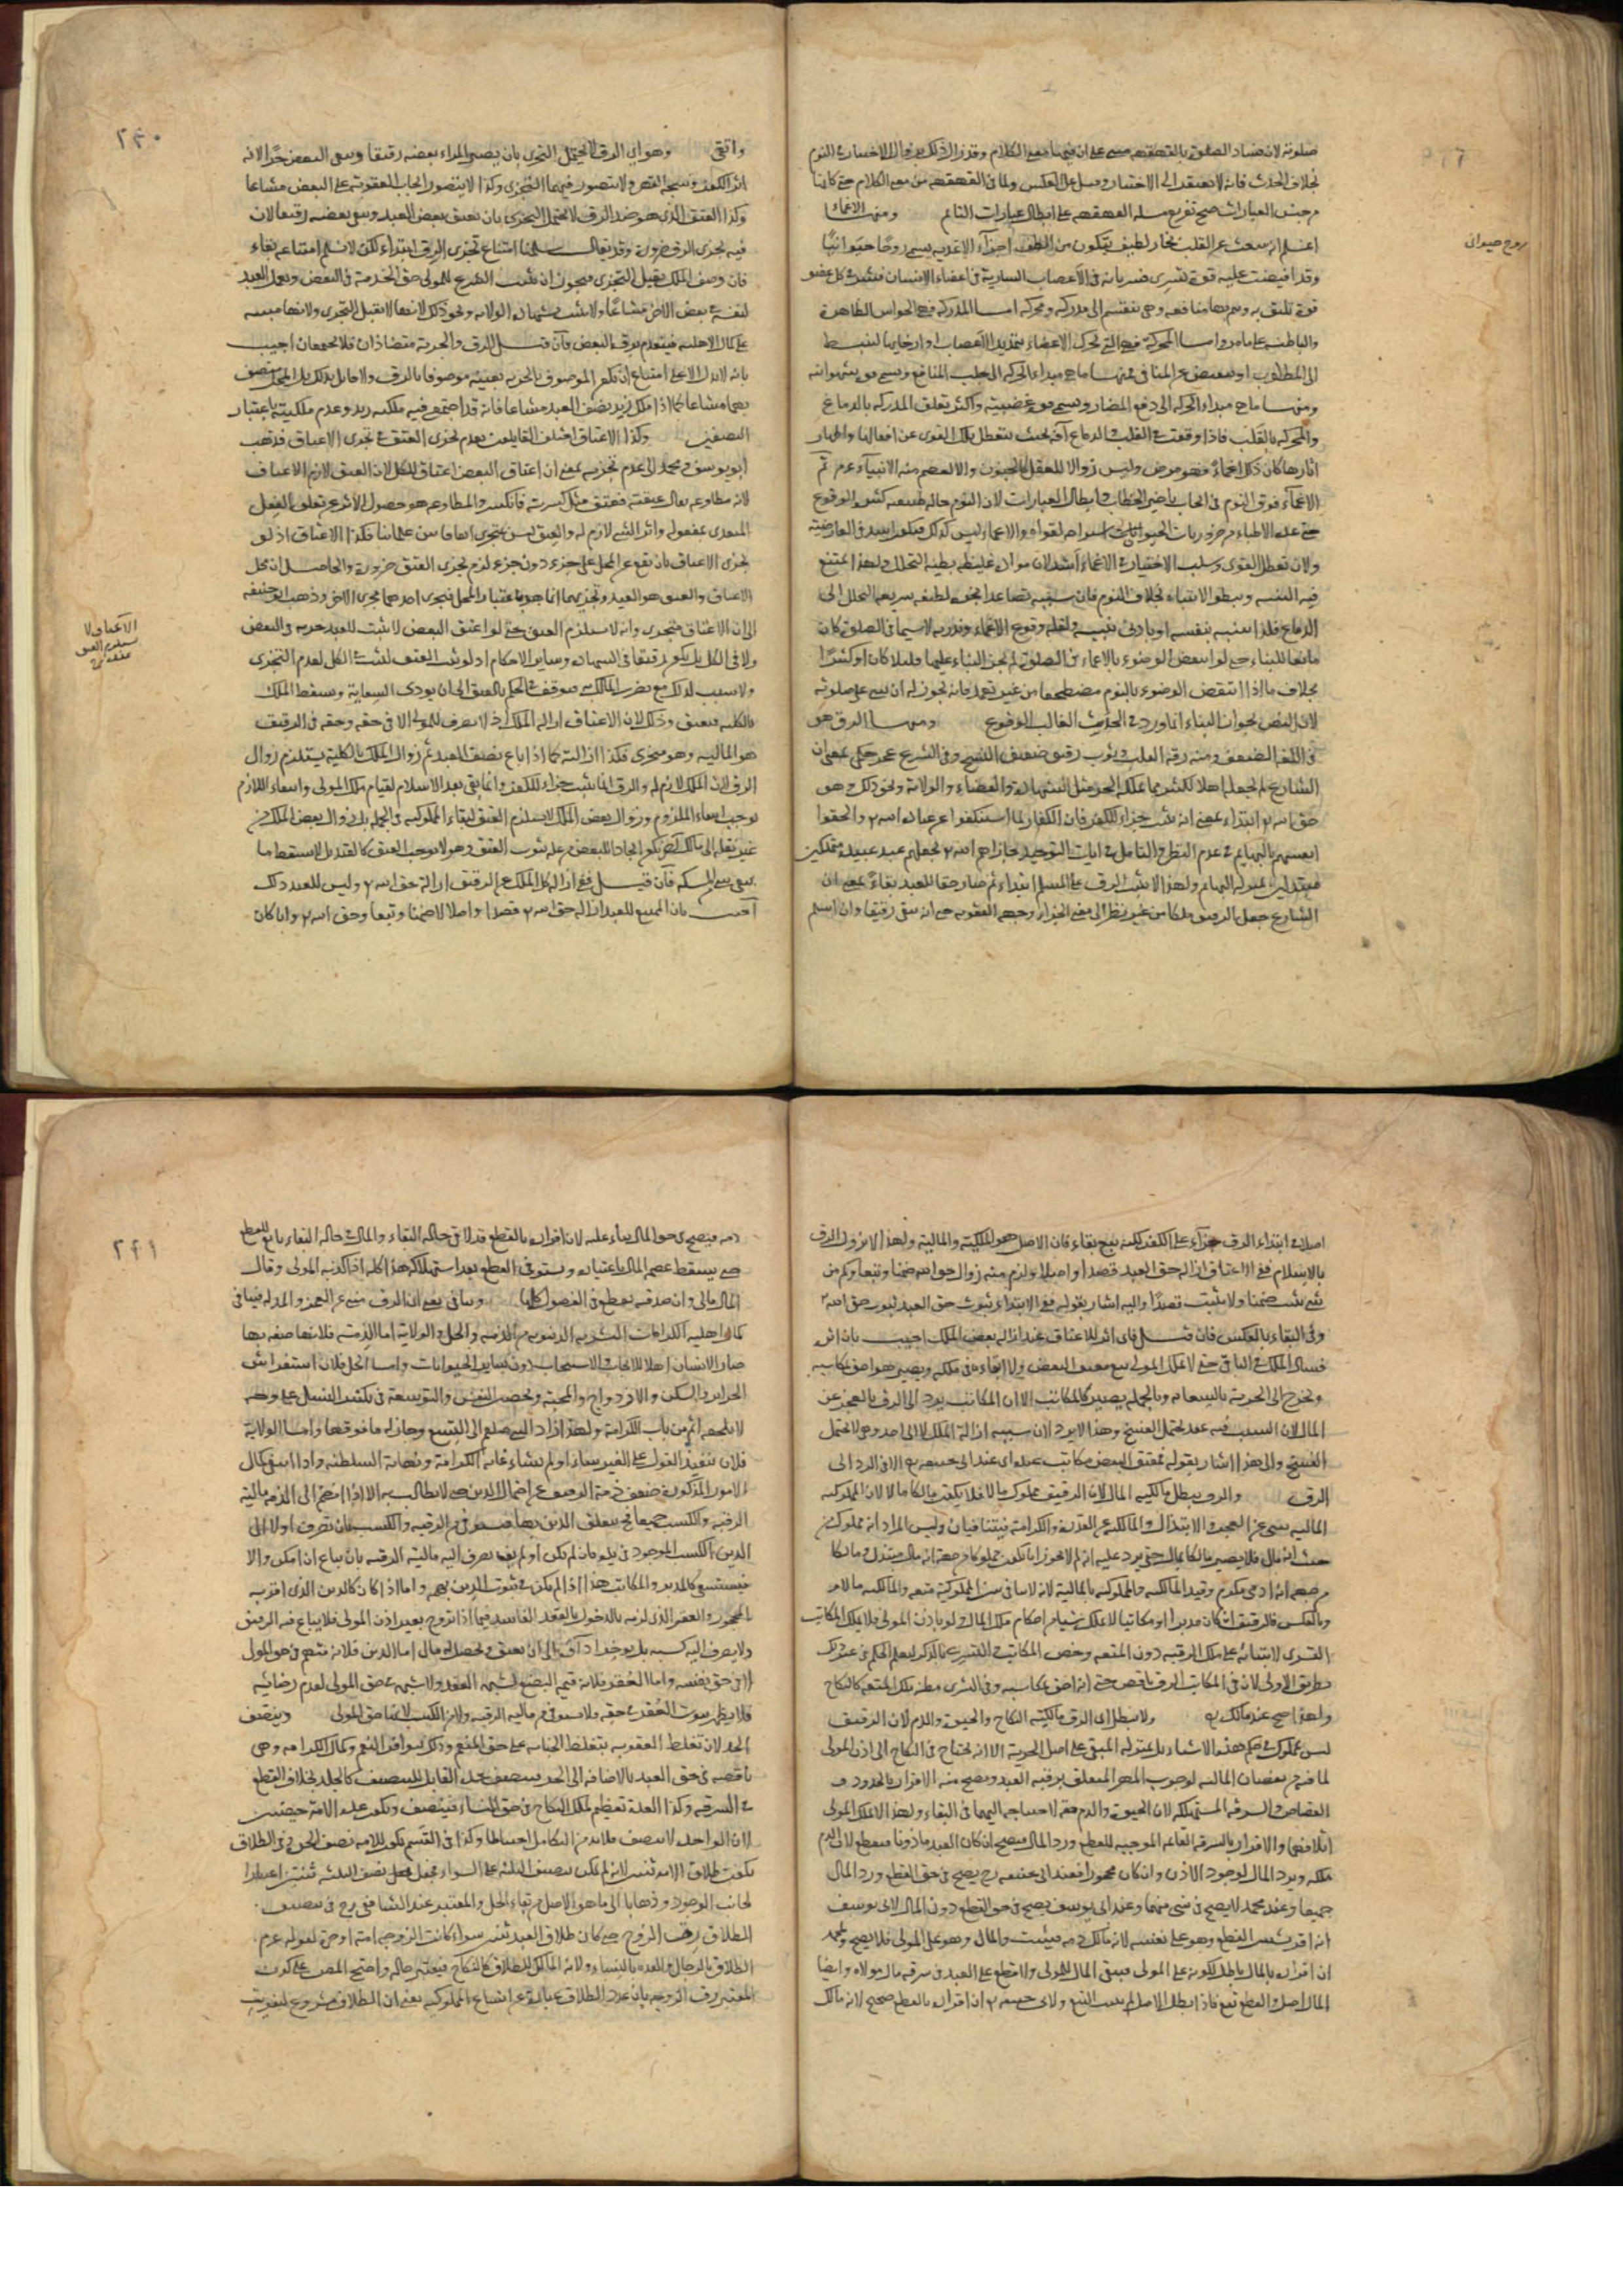 صلوته لان فساد الصلوة بالقهقهه مبنى على ان فيها معنى الكلام وقد زال ذلك بزوال الاختيار فى النوم
بخلاف الحدث فانه لا يفتقر الى الاختيار وقيل على العكس ولما فى القهقهه من معنى الكلام حتى كانها
من جنس العبارات صح تفريع مسله القهقهه على ابطال عبارات النائم ومنها الاغماء
اعلم انه ينبعث عن القلب بخار لطيف يتكون من الطف اجزاء الاغذيه يسمى روحا حيوانيا
وقد افيضت عليه قوة تسرى بسريانه فى الاعصاب السارية فى اعضاء الانسان فتثير فى كل عضو
قوة تليق به ويتم بها منافعه وهى تنقسم الى مدركه ومحركه اما المدركة فهى الحواس الظاهرة
والباطنه على ما مر واما المحركة فهى التى تحرك الاعضاء بتمديد الاعصاب او ارخائها لتنبسط
الى المطلوب او تنقبض عن المنافى فمنها ما هى مبداء الحركه الى جلب المنافع ويسمى قوة شهوانيه
ومنها ما هى مبداء الحركه الى دفع المضار ويسمى قوة غضبيته واكثر تعلق المدركه بالدماغ
والمحركه بالقلب فاذا وقعت فى القلب او الدماغ آفه بحيث تتعطل تلك القوى عن افعالها واظهار
اثارها كان ذلك اغماء فهو مرض وليس زوالا للعقل كالجنون والا لعصم منه الانبياء عم ثم
الاغماء فوق النوم فى ايجاب تاخير الخطاب وابطال العبارات لان النوم حاله طبيعيه كثير الوقوع
حتى عده الاطباء من ضروريات الحيوان استراحه لقواه والاغماء ليس كذلك فيكون اشد فى العارضيه
ولان تعطل القوى وسلب الاختيار فى الاغماء اشد لان مواده غليظه بطيئه التحلل ولهذا يمتنع
فيه التنبيه ويبطؤ الانتباه بخلاف النوم فان سببه تصاعد ابخرة لطيفه سريعه التحلل الى
الدماغ فلذا ينتبه بنفسه او بادنى تنبيه ولقله وقوع الاغماء وندرته لا سيما فى الصلوة كان
مانعا للبناء حتى لو انتقض الوضوء بالاغماء فى الصلوة لم يجز البناء عليها قليلا كان او كثيرا
بخلاف ما اذا انتقض الوضوء بالنوم مضطجعا من غير تعمد فانه يجوز له ان يبنى على صلوته
لان النص بجواز البناء انما ورد فى الحدث الغالب الوقوع ومنها الرق هو
فى اللغة الضعف ومنه رقه القلب وثوب رقيق ضعيف النسج وفى الشرع عجز حكمى بمعنى ان
الشارع لم يجعله اهلا لكثير مما يملكه الحر مثل الشهادة والقضاء والولاية ونحو ذلك وهو
حق الله ابتداء بمعنى انه ثبت جزاء للكفر فان الكفار لما استنكفوا عن عبادة الله والحقوا
انفسهم بالبهايم فى عدم النظر والتامل فى ايات التوحيد جازاهم الله بجعلهم عبيد عبيده متملكين
مبتذلين بمنزله البهايم ولهذا لا يثبت الرق على المسلم ابتداء ثم صار حقا للعبد بقاء بمعنى ان
الشارع جعل الرقيق ملكا من غير نظر الى معنى الجزاء وجهه العقوبه حتى انه يبقى رقيقا وان اسلم
روح حيوانى
٢٣٠
واتقى وهو اى الرق لا يحتمل التجزى بان يصير المراء بعضه رقيقا ويبقى البعض حرا لانه
اثر الكفر ونتيجه القهر ولا يتصور فيهما التجزى وكذا لا يتصور ايجاب العقوبة على البعض مشاعا
وكذا العتق الذى هو ضد الرق لا يحتمل التجزى بان يعتق بعض العبد ويبقى بعضه رقيقا لان
فيه تجزى الرق ضرورة وقد يقال سلمنا امتناع تجزى الرق ابتداء لكن لا نسلم امتناعه بقاء
فان وصف الملك يقبل التجزى فيجوز ان يثبت الشرع للمولى حق الخدمة فى البعض ويعمل العبد
لنفسه فى بعض الاخر مشاعا ولا يثبت الشهادة والولايه ونحو ذلك لانها لا تقبل التجزى ولانها مبنيه
على كمال الاهليه فينعدم برق البعض فان قيل الرق والحرية متضادان فلا يجتمعان اجيب
بانه لا دلالة على امتناع ان يكون الموصوف بالحرية بعينه موصوفا بالرق ولا قائل بذلك بل المحل متصف
بهما مشاعا كما اذا ملك زيد نصف العبد مشاعا فانه قد اجتمع فيه ملكيه زيد وعدم ملكيته باعتبار
النصفين وكذا الاعتاق اختلف القايلون بعدم تجزى العتق فى تجزى الاعتاق فذهب
ابو يوسف ومحمد الى عدم تجزيه بمعنى ان اعتاق البعض اعتاق للكل لان العتق لازم الاعتاق
لانه مطاوعه يقال عتقته فعتق مثل كسرته فانكسر والمطاوعه هو حصول الاثر عن تعلق الفعل
المتعدى بمفعوله واثر الشئ لازم له والعتق ليس بمتجزى اتفاقا بين علمائنا فكذا الاعتاق اذ لو
تجزى الاعتاق بان يقع من المحل على جزء دون جزء لزم تجزى العتق ضرورة والحاصل ان محل
الاعتاق والعتق هو العبد وتجزيهما انما هو باعتبار المحل فتجزى احدهما تجزى الاخر وذهب ابو حنيفه
الى ان الاعتاق متجزى وانه لا يستلزم العتق حتى لو اعتق البعض لا يثبت للعبد حريه فى البعض
ولا فى الكل بل يكون رقيقا فى الشهادة وساير الاحكام اذ لو ثبت العتق لثبت فى الكل لعدم التجزى
ولا سبب لذلك مع تضرر المالك به فيتوقف فى الحكم بالعتق الى ان يودى السعاية ويسقط الملك
بالكليه فيعتق وذلك لان الاعتاق ازاله الملك اذ لا تصرف للمولى الا فى حقه وحقه فى الرقيق
هو الماليه وهو متجزى فكذا ازالته كما اذا باع نصف العبد ثم زوال الملك بالكلية يستلزم زوال
الرق لان الملك لازم له والرق انما يثبت جزاء للكفر وانما بقى بعد الاسلام لقيام ملك المولى وانتفاء اللازم
يوجب انتفاء الملزوم وزوال بعض الملك لا يستلزم العتق لبقاء المملوكيه فى الجمله بل زوال بعض الملك من
غير نقله الى مالك اخر يكون ايجادا للبعض من عله ثبوت العتق وهو لا يوجب العتق كالقنديل لا يسقط ما
بقى شئ من المسكه فان قيل ففى ازاله كل الملك عن الرقيق ازاله حق الله وليس للعبد ذلك
اجيب بان الممتنع للعبد ازاله حق الله قصدا واصلا لا ضمنا وتبعا وحق الله وان كان
الاعتاق لا يستلزم العتق
اصلا فى ابتداء الرق جزاء على الكفر لكنه تبع بقاء فان الاصل هو الملكية والمالية ولهذا لا يزول الرق
بالاسلام ففى الاعتاق ازاله حق العبد قصدا واصلا ولزم منه زوال حق الله ضمنا وتبعا وكم من
شئ يثبت ضمنا ولا يثبت قصدا واليه اشار بقوله ففى الابتداء ثبوت حق العبد يتبع حق الله
وفى البقاء بالعكس فان قيل فاى اثر للاعتاق عند ازاله بعض الملك اجيب بان اثره
فساد الملك فى الباقى حتى لا يملك المولى بيع معتق البعض ولا ابقاءه فى ملكه ويصير هو احق بمكاسبه
ويخرج الى الحرية بالسعاية وبالجمله يصير كالمكاتب الا ان المكاتب يرد الى الرق بالعجز عن
المال لان السبب فيه عقد يحتمل الفسخ وهذا لا يرد لان سببه ازالة الملك لا الى احد وهى لا تحتمل
الفسخ والى هذا اشار بقوله فمعتق البعض مكاتب عنده اى عند ابى حنيفه رح الا فى الرد الى
الرق والرق يبطل مالكيه المال لان الرقيق مملوك مالا فلا يكون مالكا مالا لان المملوكيه
الماليه تنبى عن العجز والابتذال والمالكية عن القدرة والكرامه فيتنافيان وليس المراد انه مملوك من
حيث انه مال فلا يصير مالكا بمال حتى يرد عليه انه لم لا يجوز ان يكون مملوكا من جهة انه مال مبتذل ومالكا
من جهه انه ادمى مكرم وقيد المالكيه والمملوكيه بالمالية لانه لا تنافى بين المملوكية متعه والمالكيه مالا
وبالعكس فالرقيق وان كان مدبرا او مكاتبا لا يملك شيئا من احكام ملك المال ولو باذن المولى فلا يملك المكاتب
التسرى لابتنائه على ملك الرقبه دون المتعه وخص المكاتب والتسرى بالذكر ليعلم الحكم فى غير ذلك
بطريق الاولى لان فى المكاتب الرق ناقص حتى انه احق بمكاسبه وفى التسرى مظنه ملك المتعه كالنكاح
ولهذا صح عند مالك رح ولا يبطل اى الرق مالكيه النكاح والحيوة والدم لان الرقيق
ليس بمملوك فى حكم هذه الاشياء بل بمنزله المبقى على اصل الحرية الا انه يحتاج فى النكاح الى اذن المولى
لما فيه من نقصان الماليه لوجوب المهر المتعلق برقبه العبد ويصح منه الاقرار بالحدود و
القصاص والسرقه المستهلكه لان الحيوة والدم حقه لاحتياجه اليهما فى البقاء ولهذا لا يملك المولى
اتلافهما والاقرار بالسرقة القائمه الموجبه للقطع ورد المال فيصح ان كان العبد ماذونا فيقطع لان الدم
ملكه ويرد المال لوجود الاذن وان كان محجورا فعند ابى حنيفه رح يصح فى حق القطع ورد المال
جميعا وعند محمد لا يصح فى شئ منهما وعند ابى يوسف يصح فى حق القطع دون المال لابى يوسف
انه اقر بشيئين القطع وهو على نفسه لانه مالك دمه فيثبت والمال وهو على المولى فلا يصح ولمحمد
ان اقراره بالمال باطل لكونه على المولى فيبقى المال للمولى ولا قطع على العبد فى سرقه مال مولاه وايضا
المال اصل والقطع تبع فاذا بطل الاصل لم يثبت التبع ولابى حنيفه ان اقراره بالقطع صحيح لانه مالك
٢٣١
دمه فيصح فى حق المال بناء عليه لان اقراره بالقطع قد لاقى حاله البقاء والمال فى حاله البقاء تابع للقطع
حتى يسقط عصمه المال باعتباره ويستوفى القطع بعد استهلاكه هذا كله اذا كذبه المولى وقال
المال مالى وان صدقه يقطع فى الفصول كلها وينافى يعنى ان الرق منبى عن العجز والمذله فينافى
كمال اهليه الكرامات البشريه الدنيويه من الذمه والحل والولاية اما الذمة فلانها صفه بها
صار الانسان اهلا للايجاب والاستيجاب دون ساير الحيوانات واما الحل فلان استفراش
الحراير والسكن والازدواج والمحبة وتحصين النفس والتوسعة فى تكثير النسل على وجه
لا يلحقه اثم من باب الكرامة ولهذا زاد النبى صلعم الى التسع وجاز له ما فوقها واما الولاية
فلان تنفيذ القول على الغير شاء او لم يشاء غاية الكرامة ونهاية السلطنه واذا انتفى كمال
الامور المذكورة ضعف ذمة الرقيق عن احتمال الدين حتى لا يطالب به الا اذا انضم الى الذمه ماليه
الرقبه والكسب جميعا فح يتعلق الدين بها فيستوفى من الرقبه والكسب بان تصرف اولا الى
الدين الكسب الموجود فى يده فان لم يكن او لم يف يصرف اليه ماليه الرقبه بان يباع ان امكن والا
فيستسعى كالمدبر والمكاتب هذا اذا لم يكن فى ثبوت الدين تهمه واما اذا كان كالدين الذى اقر به
المحجور والعقر الذى لزمه بالدخول بالعقد الفاسد فيما اذا تزوج بغير اذن المولى فلا يباع فيه الرقيق
ولا يصرف اليه كسبه بل يوخر اداؤه الى ان يعتق ويحصل له مال اما الدين فلانه متهم فى حق المولى
لا فى حق نفسه واما العقر فلانه قيمه البضع لشبهه العقد ولا شبهه فى حق المولى لعدم رضائه
فلا يظهر ثبوت العقر فى حقه فلا يستوفى من ماليه الرقبه ولا من الكسب لانهما حق المولى ويتصف
الحد لان تغليظ العقوبه بتغليظ الجنايه على حق المنعم وذلك بتوافر النعم وكمال الكرامه وهى
ناقصه فى حق العبد بالاضافه الى الحر فيتنصف حده القابل للتنصيف كالجلد بخلاف القطع
فى السرقه وكذا العدة تعظيم لملك النكاح فى حق النساء فيتنصف ويكون عدة الامة حيضتين
لان الواحدة لا تتنصف فلا بد من التكامل احتياطا وكذا فى القسم يكون للامه نصف الحرة وفى الطلاق
يكون طلاق الامه ثنتين لانه لم يمكن تنصيف الثلثه على السواء فجعل نصف الثلثه ثنتين اعتبارا
لجانب الوجود وذهابا الى ما هو الاصل من بقاء الحل والمعتبر عند الشافعى رح فى تنصيف
الطلاق رقية الزوج حتى كان طلاق العبد ثنتين سواء كانت الزوجه امة او حرة لقوله عم
الطلاق بالرجال والعده بالنساء ولانه المالك للطلاق كالنكاح فيعتبر حاله واحتج المص على كون
المعتبر رق الزوجه بان عدد الطلاق عبارة عن اتساع المملوكيه يعنى ان الطلاق مشروع لتفويت